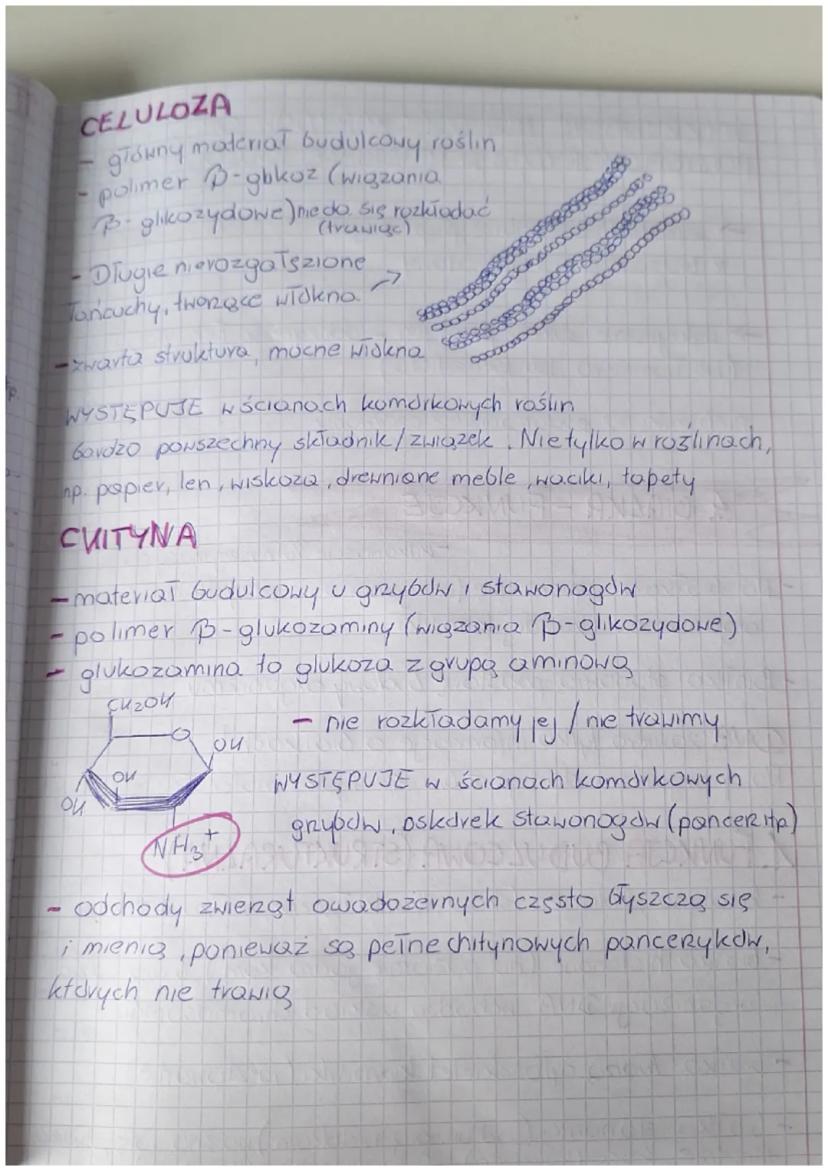 CELULOZA
- główny materiał budulcowy roślin
- polimer β-glukoz (wiązania
β-glikozydowe) nie da się rozkładać
(trawiąc)
- Długie nierozgałęzione
łańcuchy, tworzące włókna →
- zwarta struktura, mocne włókna
WYSTĘPUJE w ścianach komórkowych roślin
bardzo powszechny składnik/związek. Nie tylko w roślinach,
np. papier, len, wiskoza, drewniane meble, waciki, tapety
CHITYNA
- materiał budulcowy u grzybów i stawonogów
- polimer β-glukozaminy (wiązania β-glikozydowe)
- glukozamina to glukoza z grupą aminową
CH2OH
O
OH
OH
OH
NH3+
- nie rozkładamy jej / nie trawimy
WYSTĘPUJE w ścianach komórkowych
grzybów, oskórek stawonogów (pancerz itp)
- odchody zwierząt owadożernych często błyszczą się
i mienią, ponieważ są pełne chitynowych pancerzyków,
których nie trawią